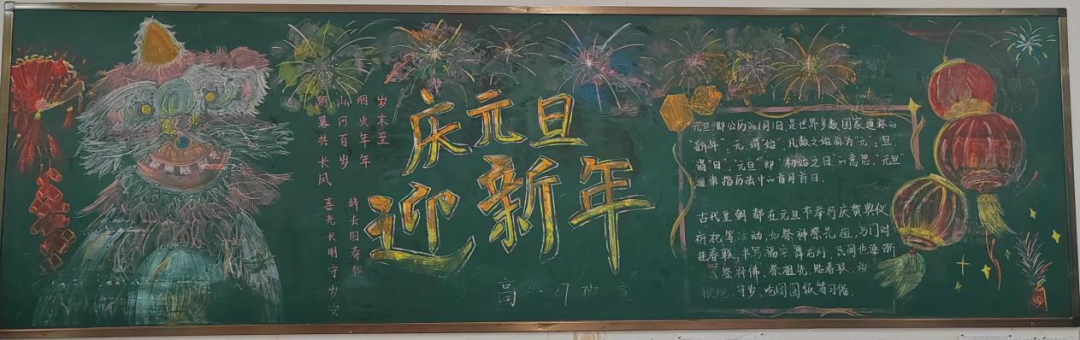 庆元旦
迎新年
岁末至
烟火年年
山河百岁
朝暮共长风
辞去旧
喜光长明守岁
元旦,即公历的1月1日,是世界多数国家通称的
"新年"。元,谓"始",凡数之始称为"元";旦,
谓"日";"元旦"即"初始之日"的意思。"元旦"
通常指历法中的首月首日。
古代皇朝都在元旦节举行庆贺典仪
祈祝等活动,如祭神祭先祖,写门对
挂春联,书写福字、舞龙灯,民间也逐渐
祭神佛、祭祖先、贴春联、放
守岁、吃团圆饭等习俗
高